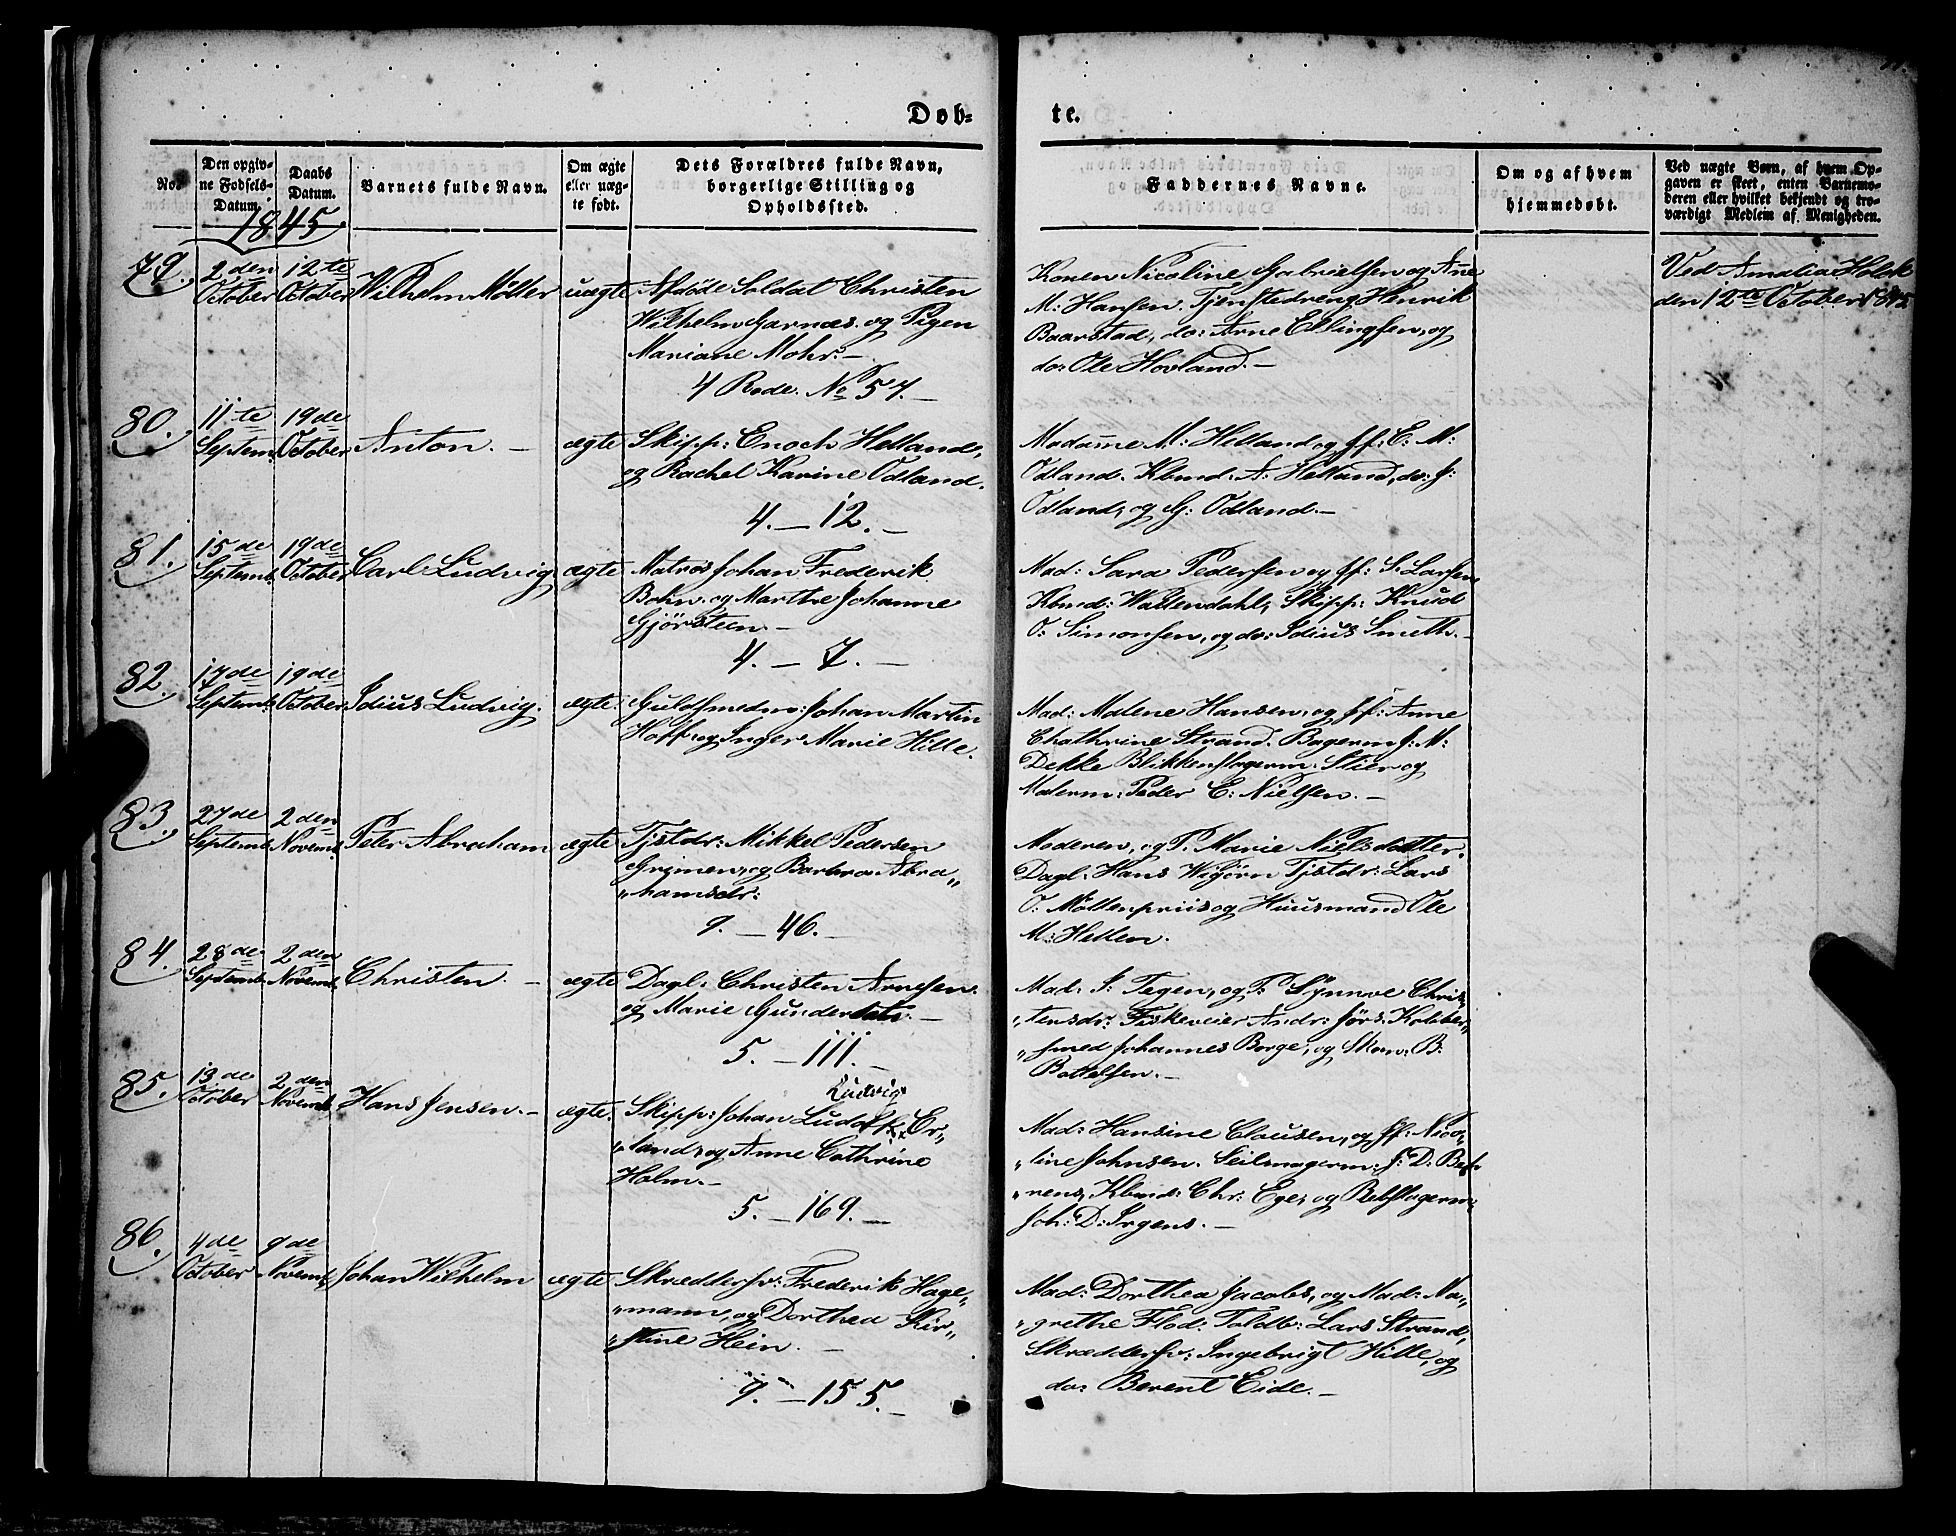 Døb=
te.
No.
Den opgiv-
ne Fødsels-
Datum.
Daabs
Datum.
Barnets fulde Navn.
Om ægte
eller uæg-
te født.
Dets Forældres fulde Navn,
borgerlige Stilling og
Opholdssted.
Faddernes Navne.
Om og af hvem
hjemmedøbt.
Ved uægte Børn, af hvem Op-
gaven er skeet, enten Barnemo-
deren eller hvilket bekjendt og tro-
værdigt Medlem af Menigheden.
1845
79.
2den
October
12te
October
Wilhelm Møller
uægte
Afdøde Soldat Christen
Wilhelm Garnæs og Pigen
Mariane Mohr. -
4 Rode. No 57. -
Konen Nicoline Gabrielsen og Anne
M: Hansen. Tjenstedreng Henrik
Baarstad, do: Arne Ellingsen, og
do: Ole Hovland. -
Ved Amalia Holck
den 12te October 1845
80.
11te
Septem:
19de
October
Anton. -
ægte
Skipp: Enoch Helland,
og Rachel Karine Odland.
4. - 12. -
Madame M: Helland og Jf: E: M:
Odland. Kbmd: A: Helland, do: J:
Odland, og G: Odland. -
81.
15de
Septemb.
19de
October
Carl Ludvig
ægte
Matros Johan Frederik
Bohn, og Marthe Johanne
Gjørsteen. -
4. - 7. -
Mad: Sara Pedersen og Jf: S: Larsen
Kbmd: Wallendahl, Skipp: Knud
O: Simonsen, og do: Idius Smeth. -
82.
17de
Septemb:
19de
October
Idius Ludvig.
ægte
Guldsmedm: Johan Martin
Hoff og Inger Marie Hille.
Mad: Malene Hansen, og Jf: Anne
Chathrine Strand. Bagerm J: M:
Dekke Blikkenslagerm. Stier og
Malerm: Peder C: Nielsen. -
83.
27de
Septemb.
2den
Novemb.
Peter Abraham
ægte
Tjstdr: Mikkel Pedersen
Grimen, og Barbra Abra„
„hamsdr:
9. - 46. -
Moderen, og P. Marie Nielsdatter.
Dagl. Hans Wigørn Tjstdr: Lars
O: Møllenpriis og Huusmand Ole
M: Hellen.
84.
28de
Septemb.
2den
Novemb.
Christen. -
ægte
Dagl: Christen Arnesen.
og Marie Gunder -
5. - 111. -
Mad: I: Tegen, og P: Synnve Chris„
„tensdr: Fiskeveier Andr: Jørs. Kobber„
„smed Johannes Borge, og Skom: B:
Bottelsen. -
85.
13de
October
2den
Novemb.
Hans Jensen. -
ægte.
Ludvig
Skipp: Johan Er„
„land, og Anne Cathrine
Holm. -
5. - 169. -
Mad: Hansine Clausen, og Jf: Nico„
„line Johnsen. Seilmagerm: J: D: Beh„
„rens, Kbmd: Chr: Ege, og Rebslagerm:
Joh: D: Irgens. -
86.
4de
October
9de
Novemb.
Johan Wilhelm
ægte
Skræddersv: Frederik Hage„
„mann, og Dorthea Kir„
„stine Hein. -
9. - 155. -
Mad: Dorthea Jacobs, og Mad: Ma„
„grethe Flod: Toldb: Lars Strand,
Skræddersv: Ingebrigt Hille, og
do: Berent Eide. -